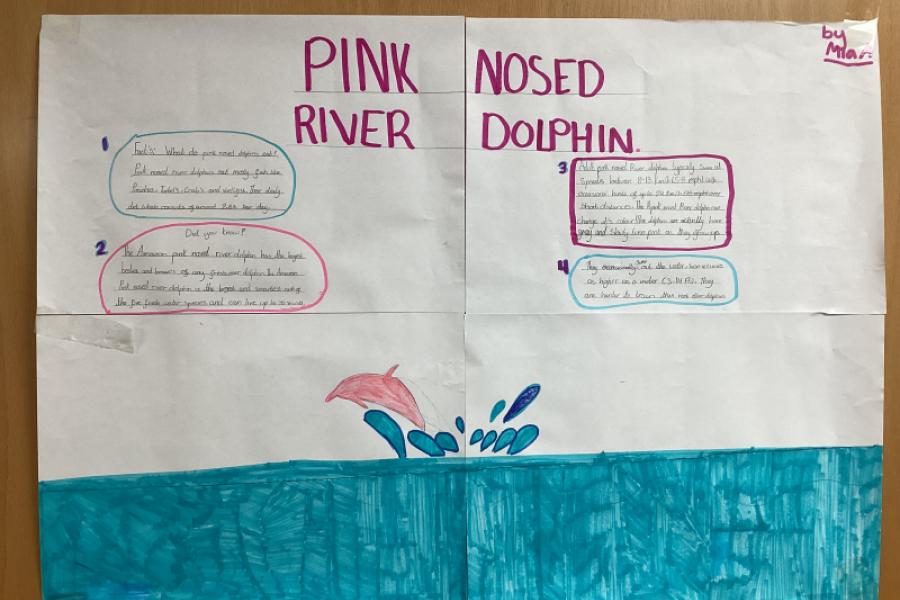 PINK NOSED
RIVER DOLPHIN.
by
Mia
1
Facts: What do pink nosed dolphins eat?
Pink nosed river dolphins eat mostly fish like
and
diet which consists of around
2
Did you know?
The Amazon pink nosed river dolphin has the largest
bodies and brains of any freshwater dolphin. The Amazon
Pink nosed river dolphin is the largest and smartest out of
the five fresh water species and can live up to 30 years.
3
Adult pink nosed River dolphin typically swim at
Speeds between
occasional bursts of up to
Short distances. The pink nosed River dolphin can
change it's colour. The dolphin are actually born
grey and slowly turn pink as they grow up.
4
They occasionally out the water
as high as a meter (3.3ft). They
are harder to train than most other dolphins